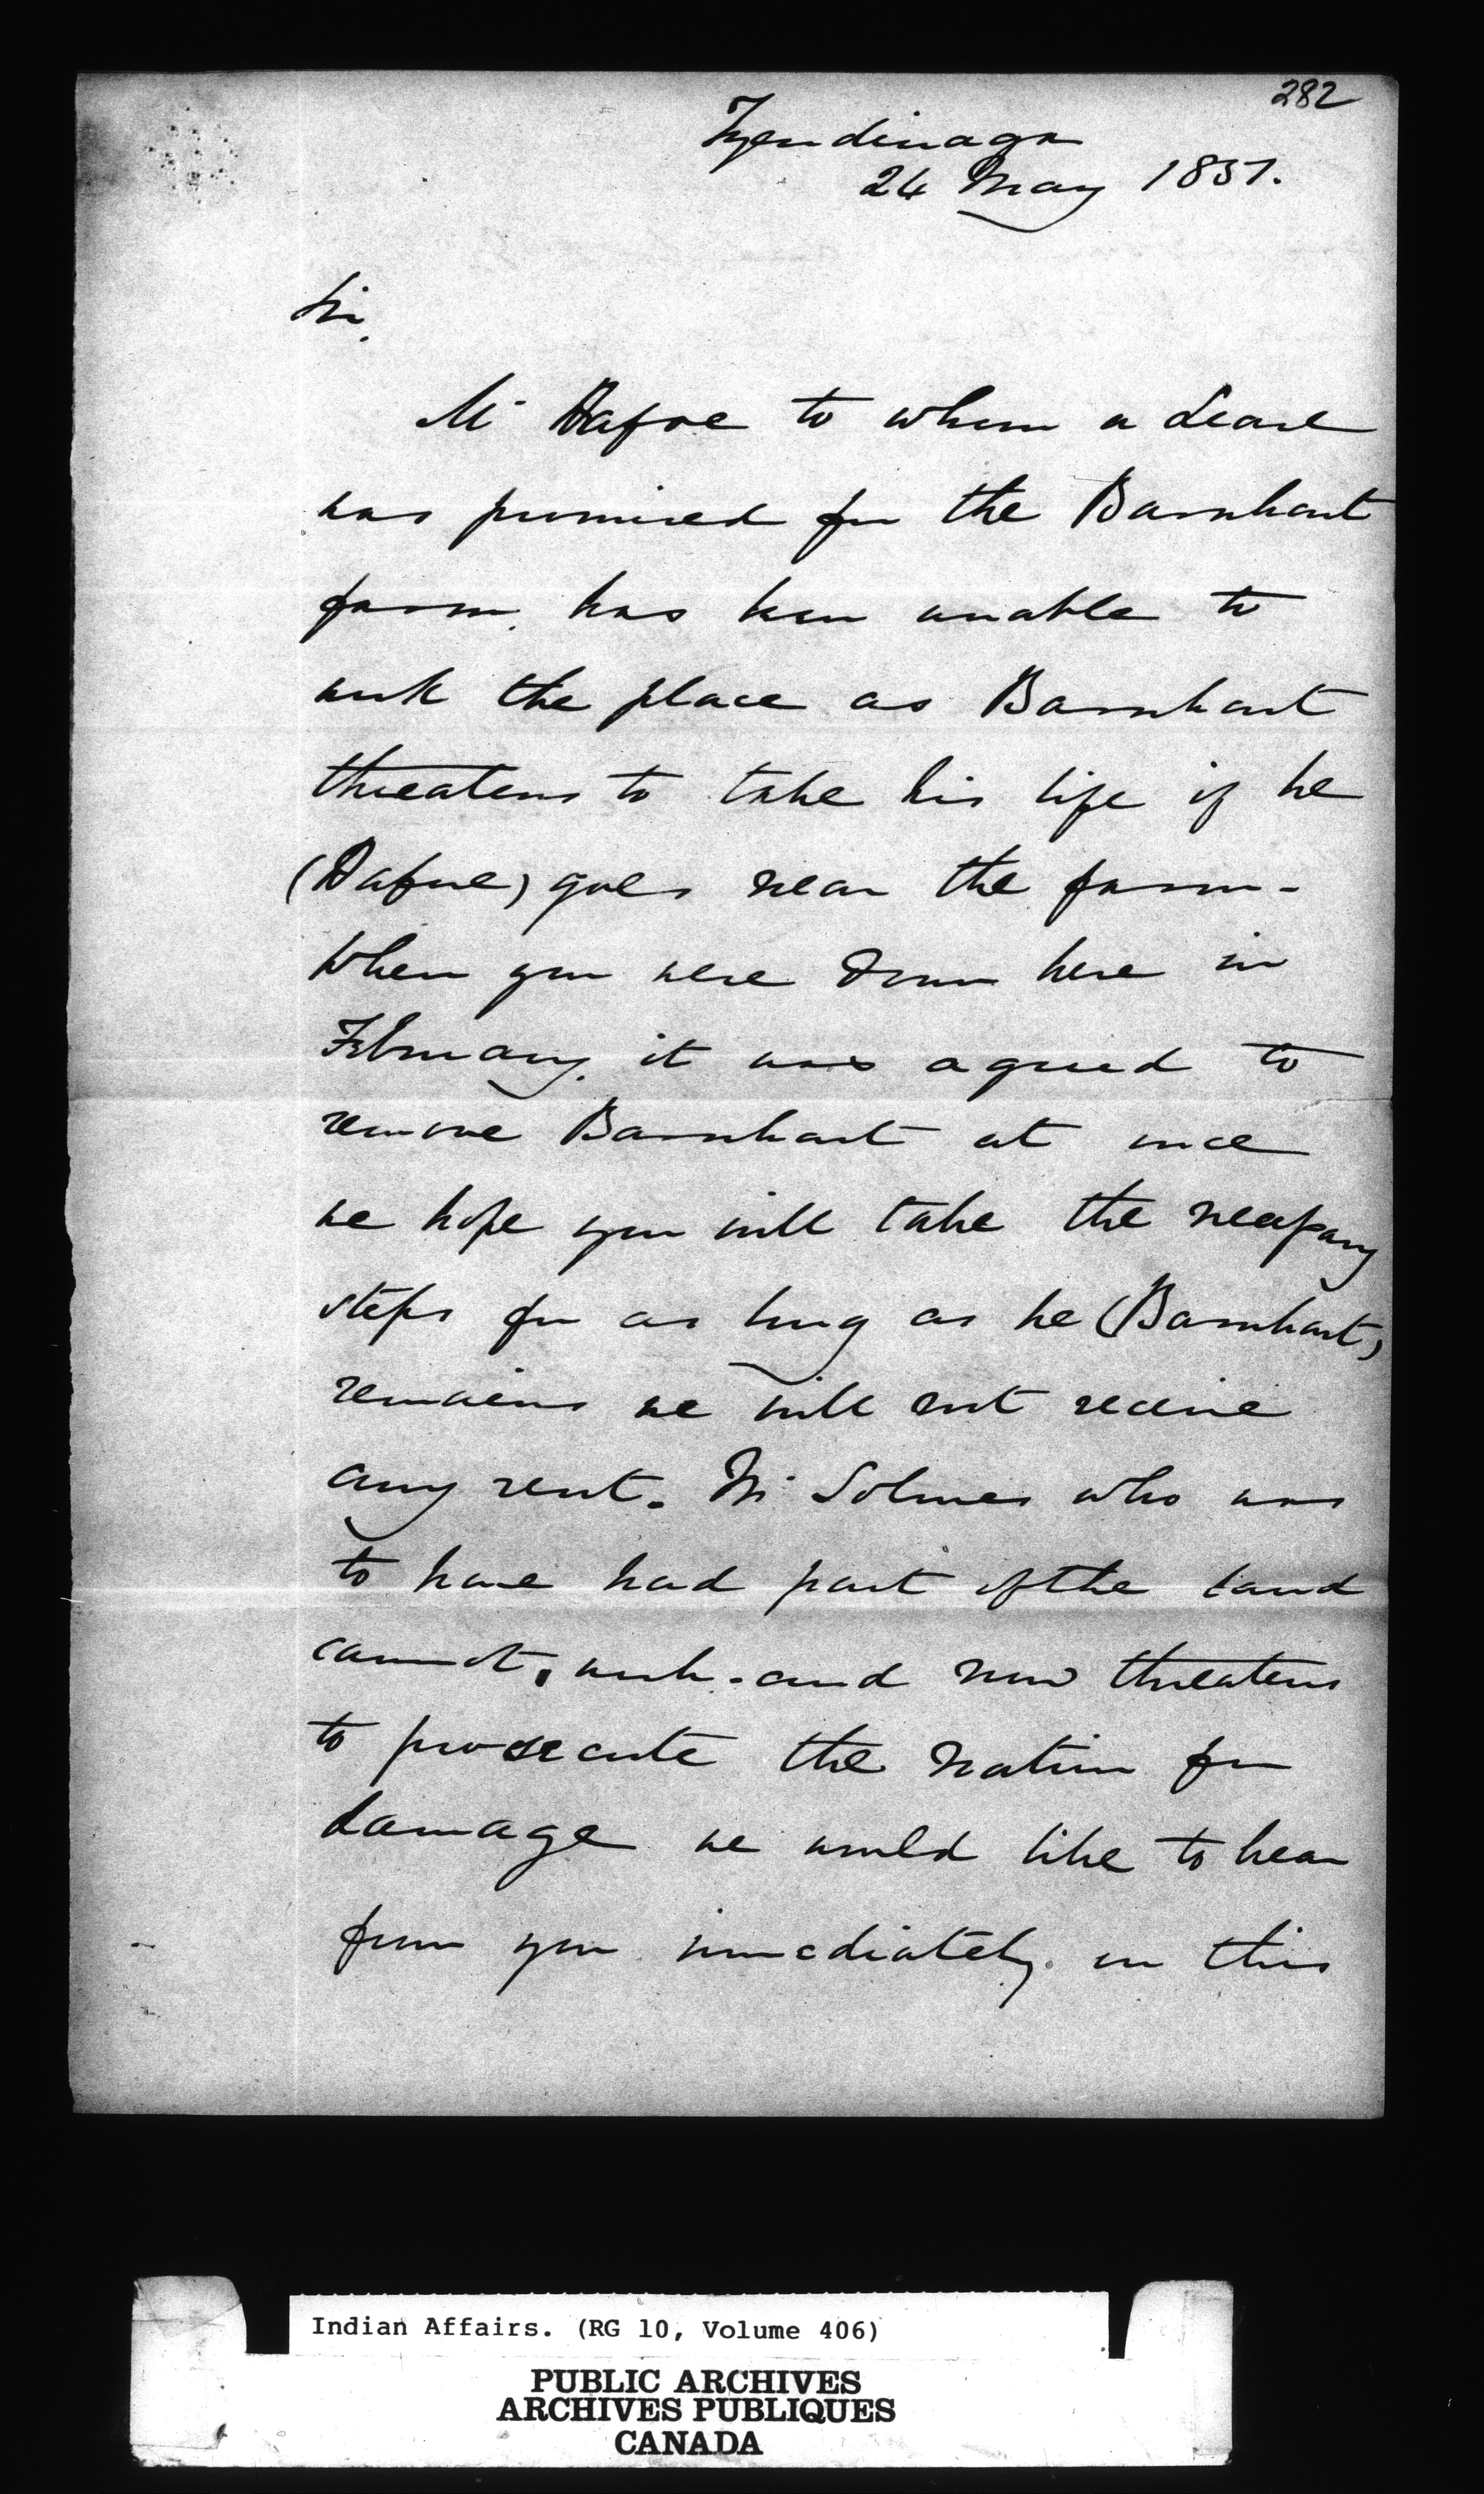 282
Tyendinaga
24 May 1857.
Sir,
Mr Dafoe to whom a Lease
was promised for the Barnhart
farm, has been unable to
work the place as Barnhart
threatens to take his life if he
(Dafoe) goes near the farm -
When you were down here in
February, it was agreed to
remove Barnhart at once
we hope you will take the necessary
steps for as long as he (Barnhart)
remains we will not receive
any rent. Mr Solmes who was
to have had part of the land
cannot, work - and now threatens
to prosecute the Nation for
damage we would like to hear
from you immediately on this
Indian Affairs. (RG 10, Volume 406)
PUBLIC ARCHIVES
ARCHIVES PUBLIQUES
CANADA